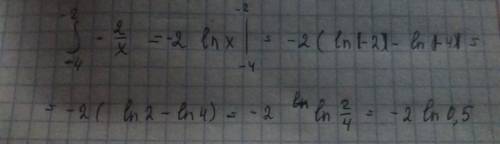 ∫_{-4}^{-2} - 2/x = -2 ln x |_{-4}^{-2} = -2 ( ln|-2| - ln|-4| ) =
= -2 ( ln 2 - ln 4 ) = -2 ln ln 2/4 = -2 ln 0,5